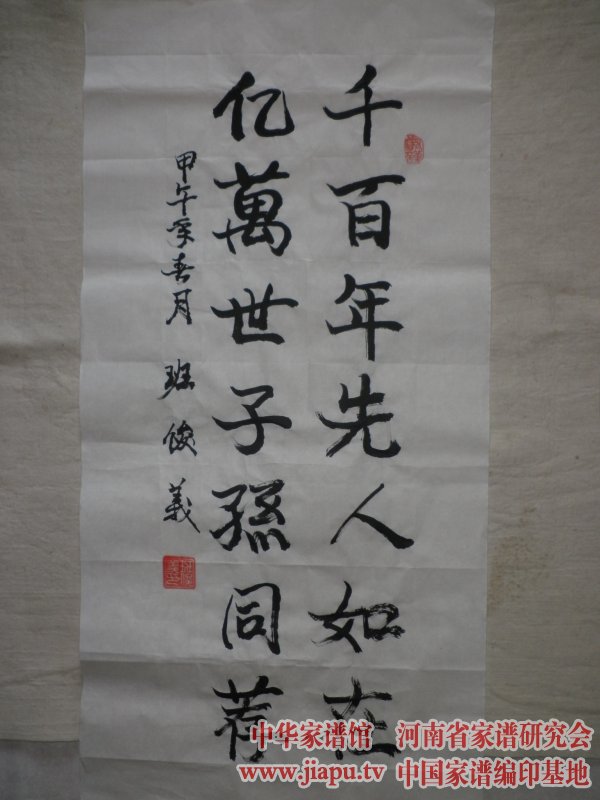 千百年先人如在
亿萬世子孫同荐
甲午季春月 班俊義
中华家谱馆 河南省家谱研究会
www.jiapu.tv 中国家谱编印基地